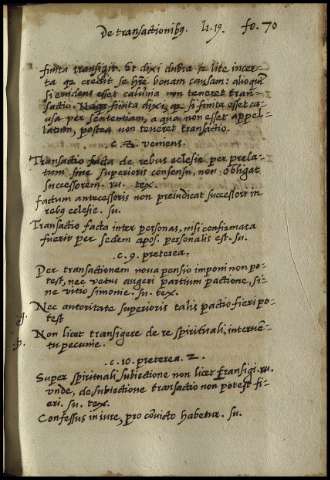 De transactionibꝫ. li. 19. fo. 70
finita transigit. Et dixi dubia se lite incer-
ta qꝫ credit se hr̃e bonam causam: alioqui
si euidens esset calunia non teneret tran-
sactio. Nqꝫ finita dixi, qꝫ si finita esset ca-
usa per sententiam, a qua non esset appel-
latum, postea non teneret transactio.
c. 8. veniens.
Transactio facta de rebus eclesie per prela-
tum sine superioris consensu, non obligat
successorem. ru. tex.
Factum antecessoris non preiudicat successori in
rebꝫ eclesie. su.
Transactio facta inter personas, nisi confirmata
fuerit per sedem apos. personalis est. su.
c. 9. preterea.
Per transactionem noua pensio imponi non po-
test, nec vetus augeri partium pactione, si-
ne vitio simonie. su. tex.
Nec autoritate superioris talis pactio fieri po-
test
Non licet transigere de re spirituali, interuẽ-
tu pecunie.
c. 10. preterea. 2.
Super spirituali subiectione non licet trãnsigi. ru.
vnde, de subiectione transactio non potest fi-
eri. su. tex.
Confessus in iure, pro cõuicto habetur. su.